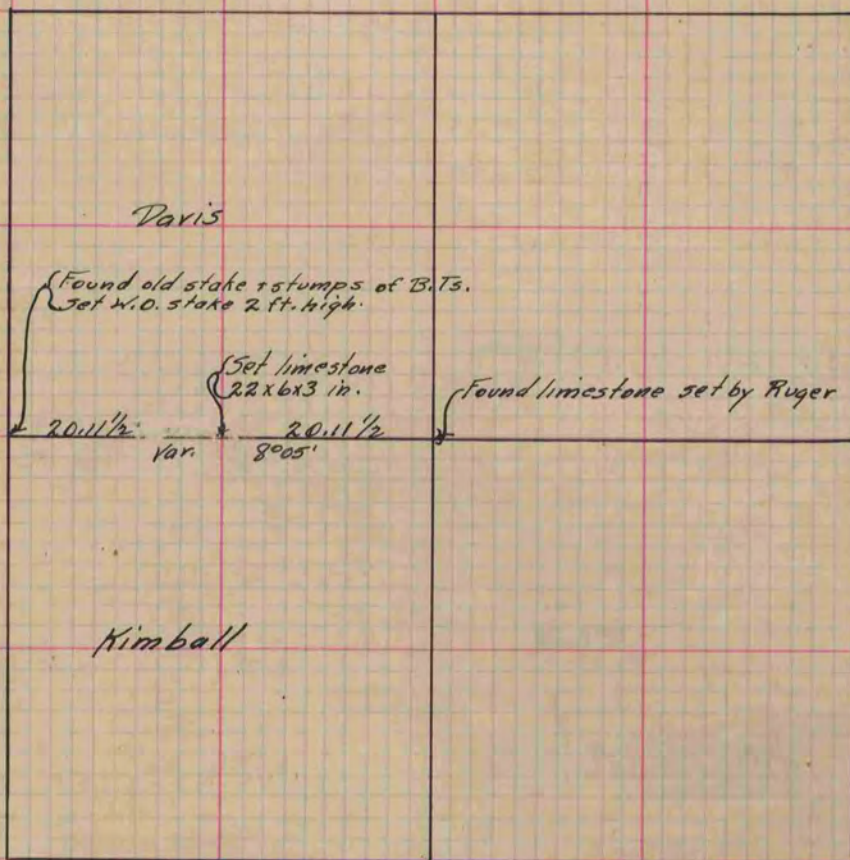 Davis
Found old stake + stumps of B.Ts.
Set W.O. stake 2 ft. high.
Set limestone
22x6x3 in.
Found limestone set by Ruger
20.11 1/2 20.11 1/2
Var. 8°05'
Kimball